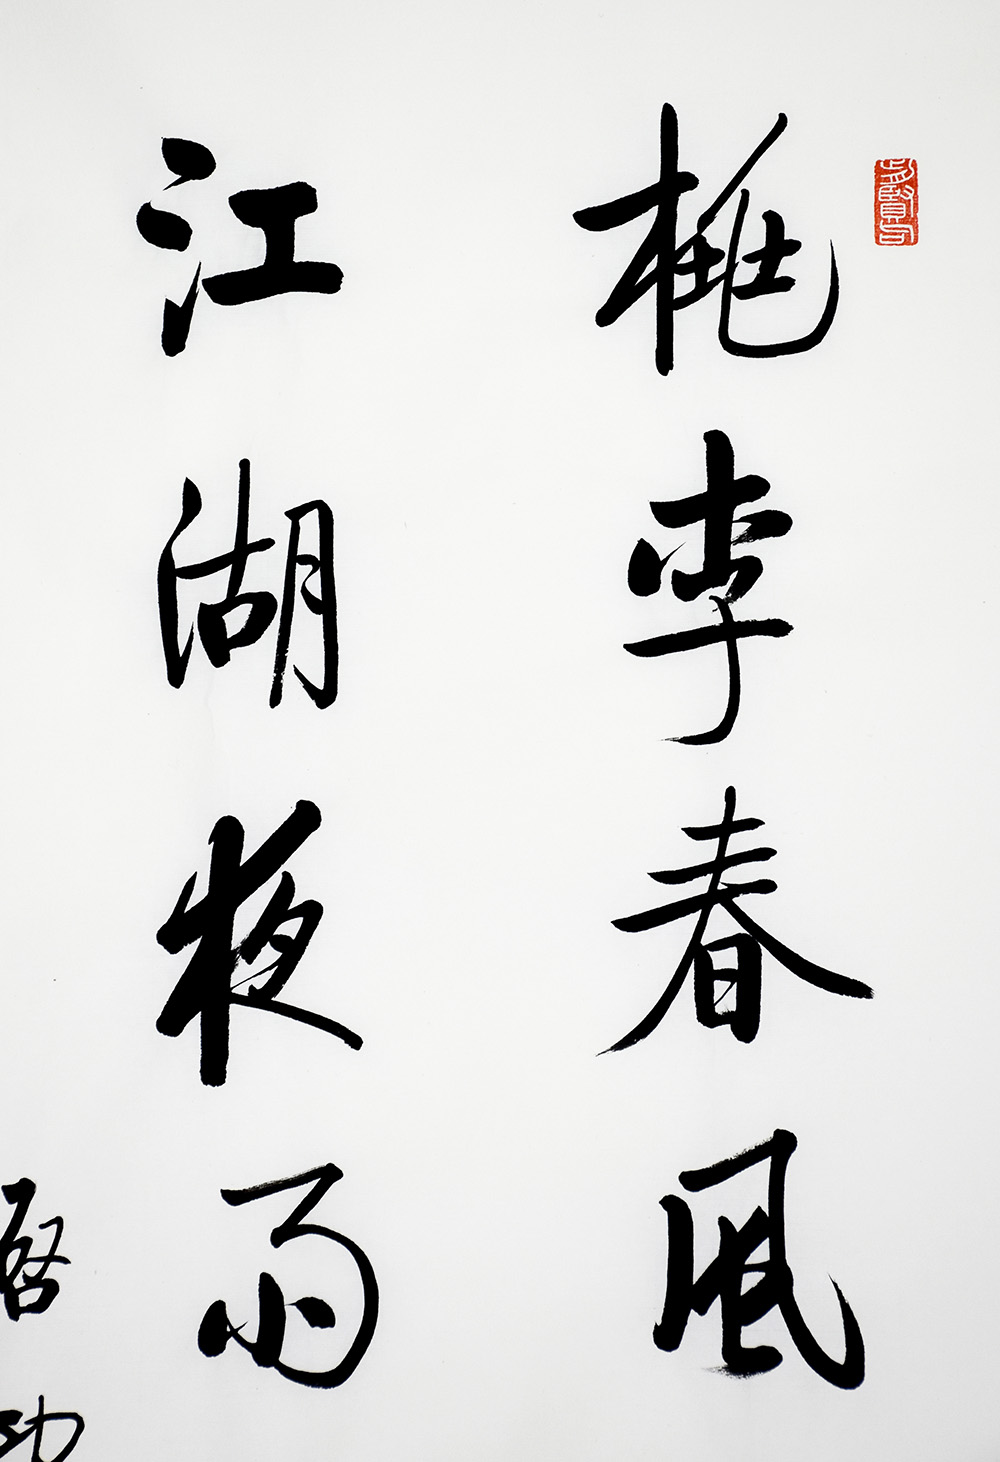 桃李春风
江湖夜雨
启功